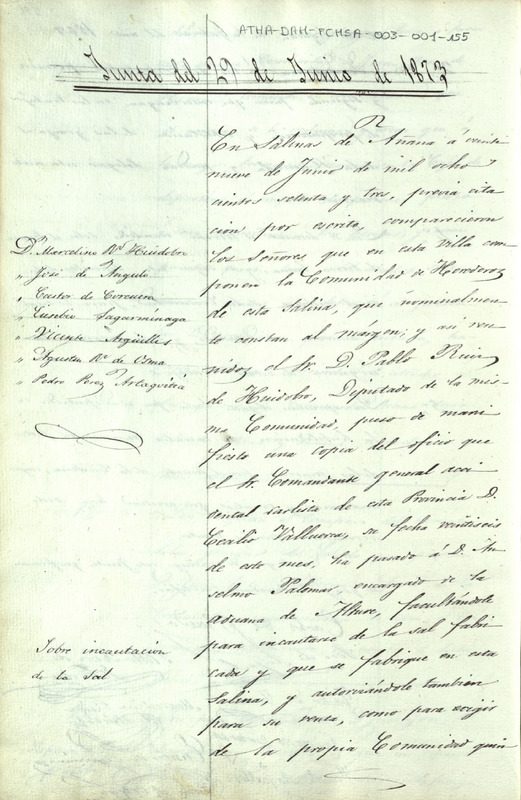 ATHA-DAH-FCHSA-003-001-155
Junta del 29 de Junio de 1873
D. Marcelino Rz Huidobro
" José de Angulo
" Castor de Corcuera
" Eusebio Sagarminaga
" Vicente Argüelles
" Agustin Rz de Oma
" Pedro Perez Artaguitia
Sobre incautación
de la Sal
En Salinas de Añana á veinte
nueve de Junio de mil ocho
cientos setenta y tres, prévia cita
cion por escrito, comparecieron
los Señores que en esta villa com
ponen la Comunidad de Herederos
de esta Salina, que nominalmen
te constan al margen; y asi reu
nidos el Sr. D. Pablo Ruiz
de Huidobro, Diputado de la mis
ma Comunidad, puso de mani
fiesto una copia del oficio que
el Sr. Comandante general acci
dental carlista de esta Provincia D.
Cecilio Valluerca, su fecha veintiseis
de este mes, ha pasado á D. An
selmo Palomar, encargado de la
aduana de Alture, facultándole
para incautarse de la sal fabri
cada y que se fabrique en esta
Salina, y autorizándole tambien
para su venta, como para exigir
de la propia Comunidad quin